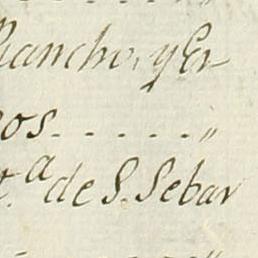 Rancho, y Er-
os. . . . . . „
t.ª de S. Sebas